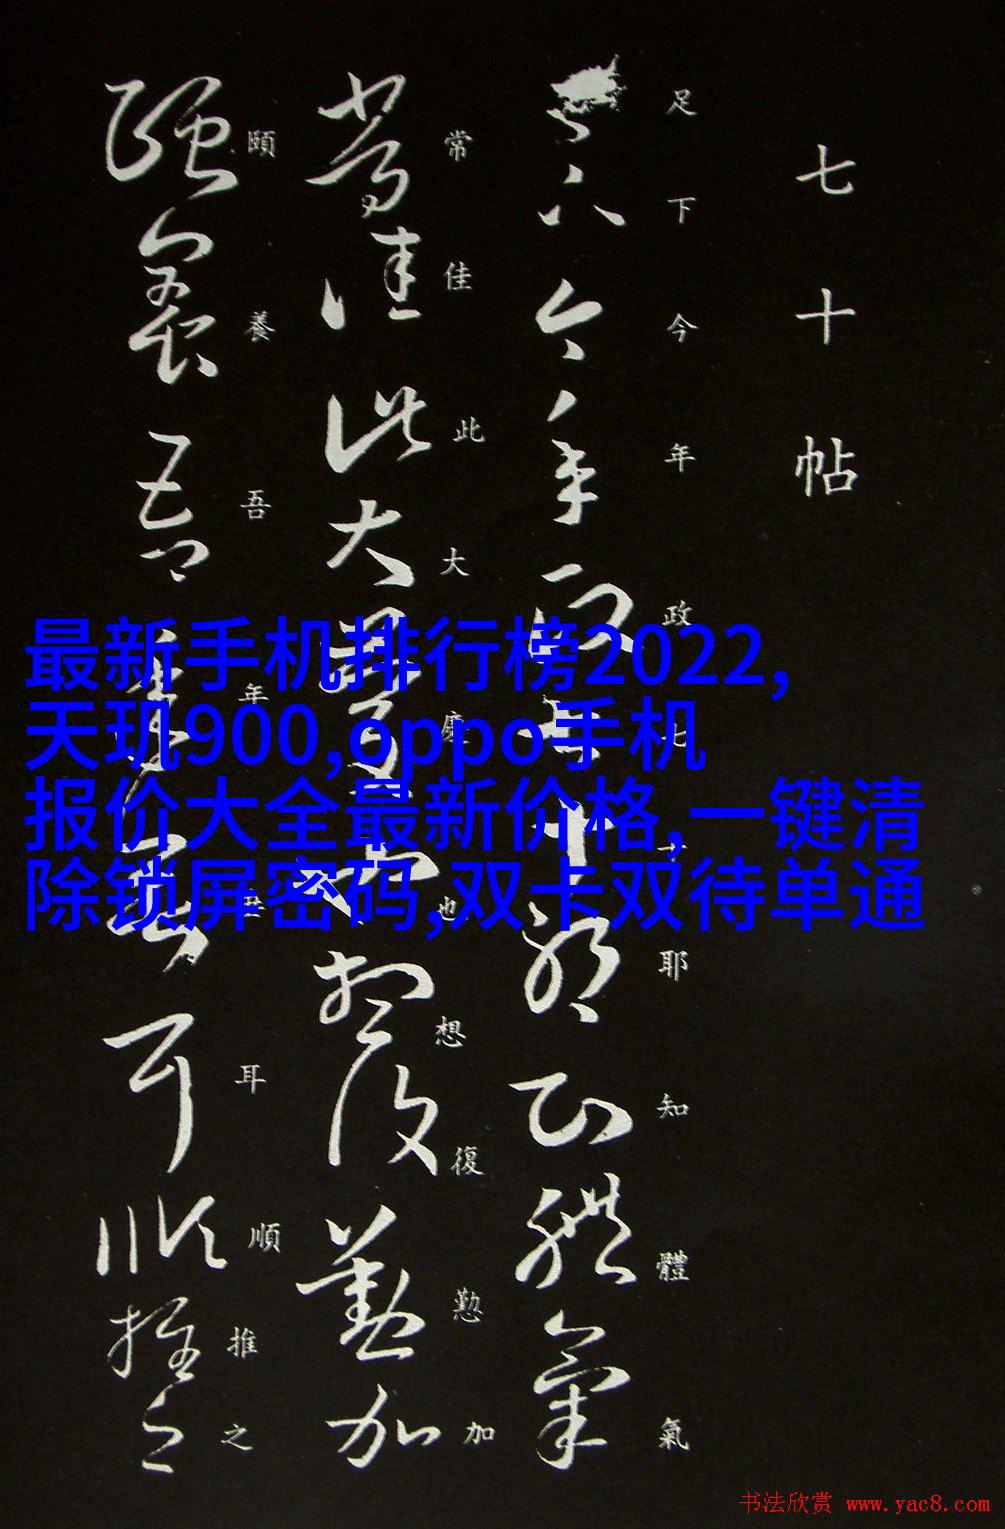 七十帖
足下今年政七十耶知體氣
常佳此大慶也想復懃加
頤養吾年耳順推之
最新手机排行榜2022,
天玑900,oppo手机
报价大全最新价格,一键清
除锁屏密码,双卡双待单通
书法欣赏 www.yac8.com